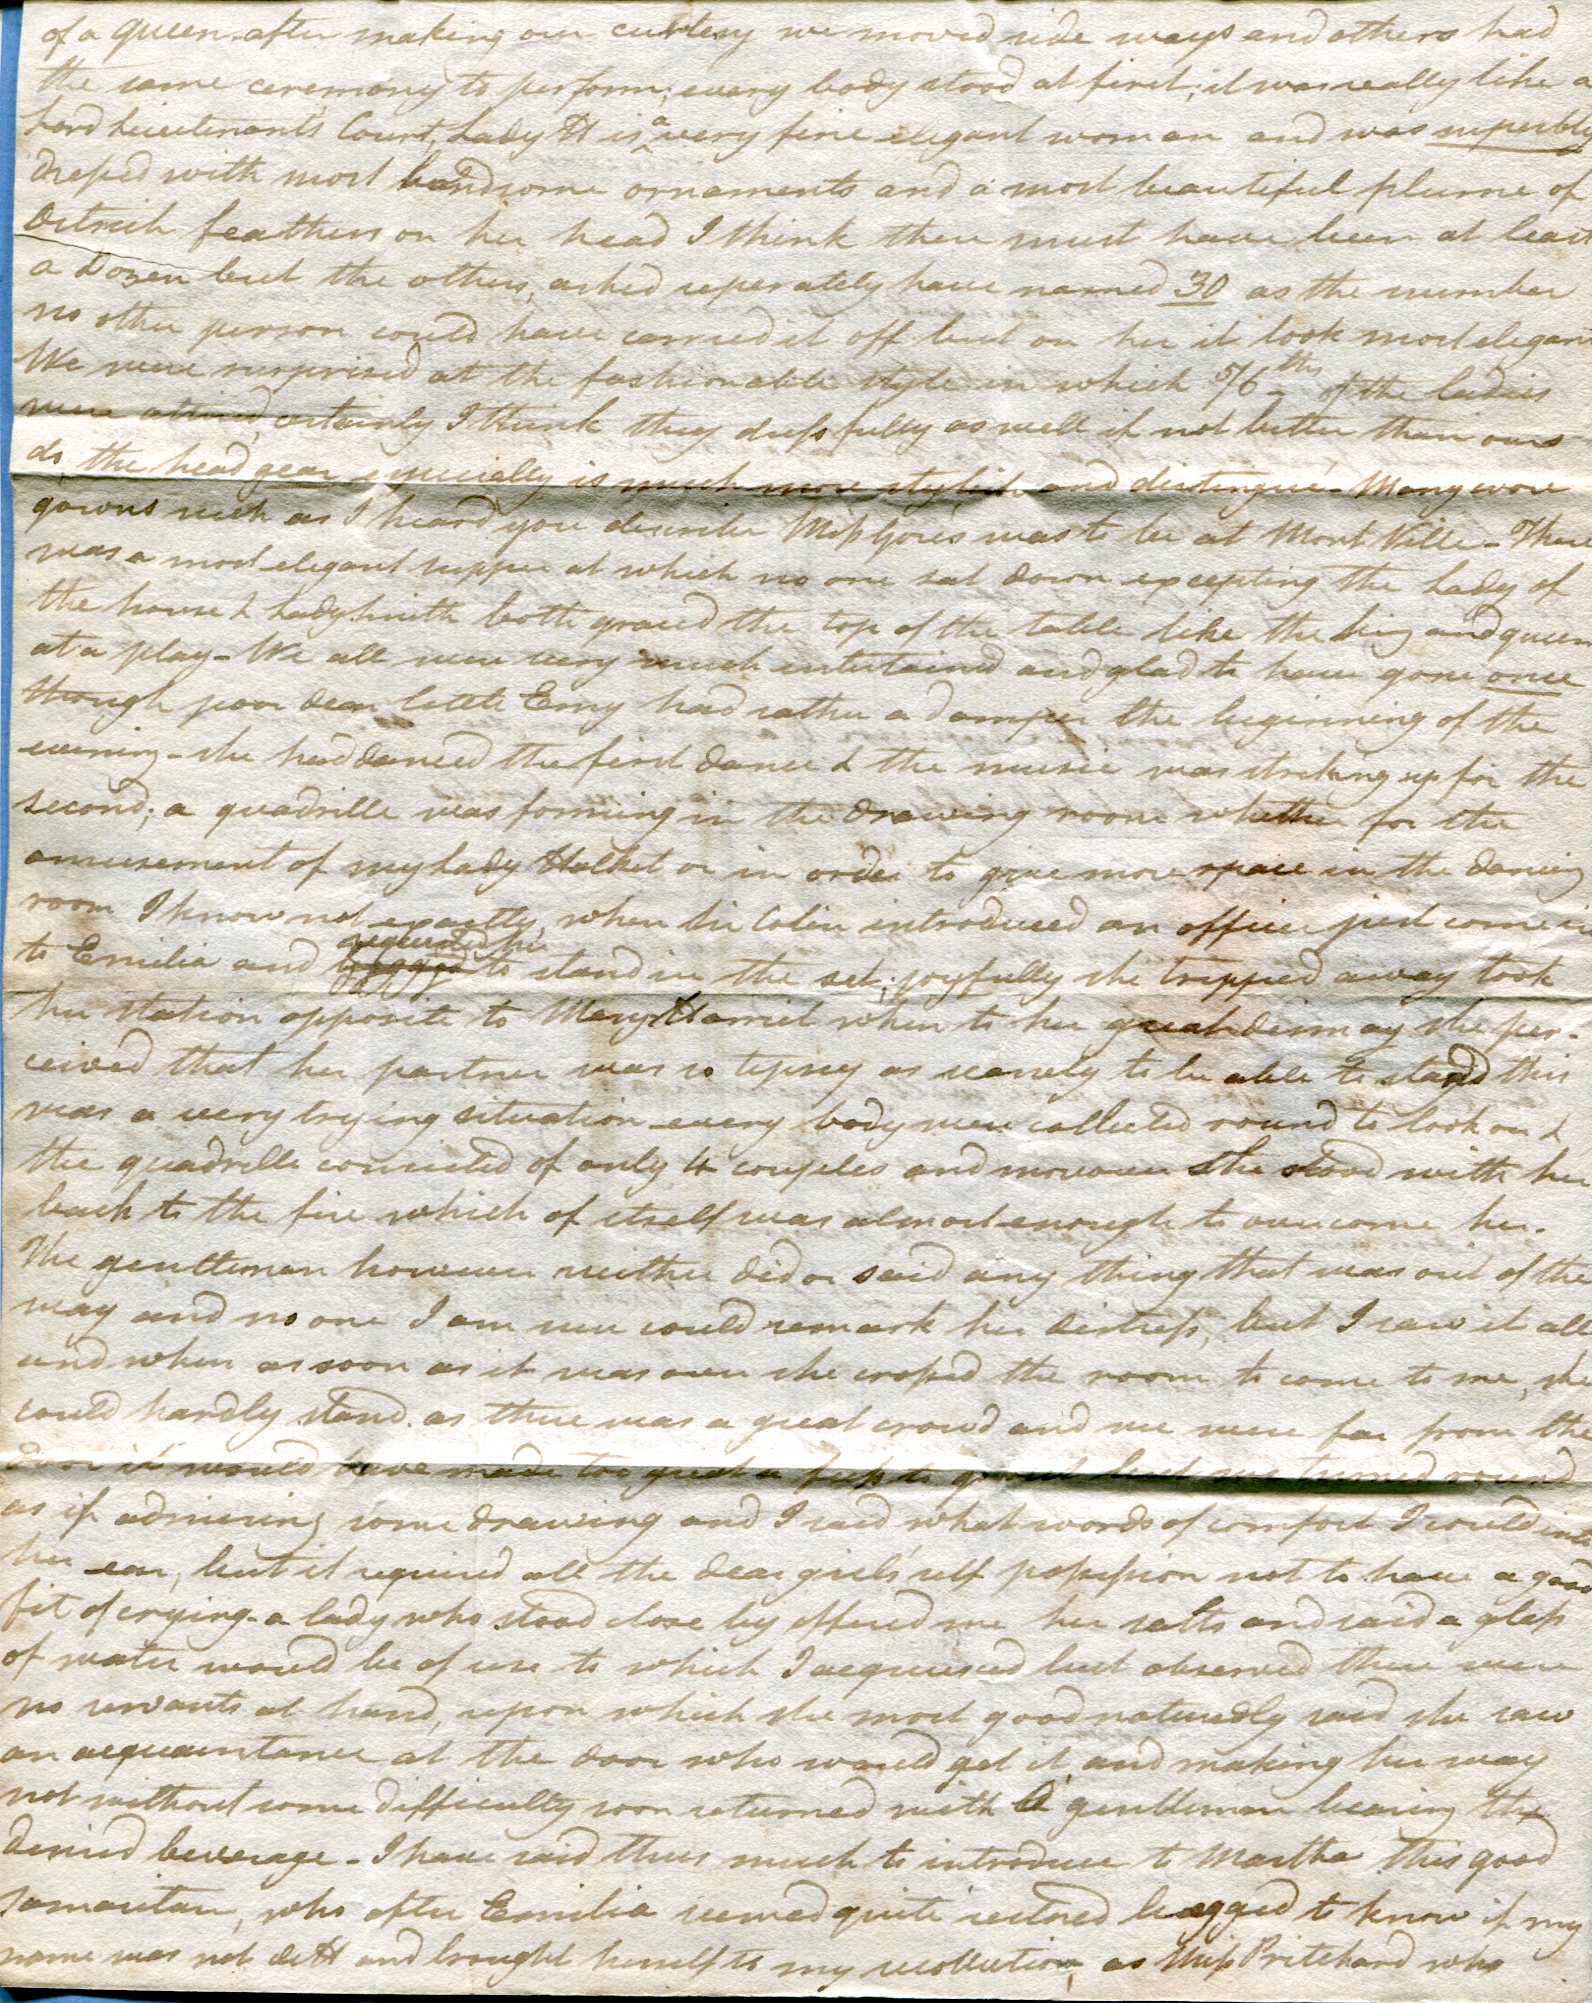 of a queen after making our curtesy we moved side ways and others had
the same ceremony to perform; every body stood at first; it was really like a
Lord Lieutenants Court, Lady H is a very fine elegant woman and was superbly
dressed with most handsome ornaments and a most beautiful plume of
Ostrich feathers on her head I think there must have been at least
a dozen but the others, asked seperately have named 30 as the number
no other person could have carried it off but on her it look most elegant
We were surprised at the fashionable style in which 5/6ths of the ladies
were attired, certainly I think they dress fully as well if not better than ours
do, the head gear especially is much more stylish and distingué. Many wore
gowns such as I heard you describe Miss Gore's was to be at Mont Ville - There
was a most elegant supper at which no one sat down excepting the Lady of
the house & Lady Smith both graced the top of the table like the king and queen
at a play - We all were very much entertained and glad to have gone once
though poor dear little Emy had rather a damper the beginning of the
evening - she had danced the first dance & the music was striking up for the
second; a quadrille was forming in the drawing room whether for the
amusement of my Lady Halket or in order to give more space in the dancing
room I know not exactly, when Sir Colin introduced an officer just come in
to Emilia and begged requested her to stand in the set; joyfully she tripped away took
her station opposite to Mary Harriet when to her great dismay she per-
ceived that her partner was so tipsy as scarcely to be able to stand this
was a very trying situation every body were collected round to look on &
the quadrille consisted of only 4 couples and moreover she stood with her
back to the fire which of itself was almost enough to overcome her.
The gentleman however neither did or said any thing that was out of the
way and no one I am sure could remark her distress, but I saw it all
and when as soon as it was over she crossed the room to come to me, she
could hardly stand. as there was a great crowd and we were far from the
door it would have made too great a fuss to go out but we turned round
as if admiring some drawing and I said what words of comfort I could into
her ear, but it required all the dear girl's self possession not to have a good
fit of crying - a lady who stood close by offered me her salts and said a glass
of water would be of use to which I acquiesced but observed there were
no servants at hand, upon which she most good naturedly said she saw
an acquaintance at the door who would get it, and making her way
not without some difficulty soon returned with a gentleman bearing the
desired beverage - I have said thus much to introduce to Martha this good
Samaritan, who after Emilia seemed quite restored begged to know if my
name was not de H and brought herself to my recollection, as Miss Pritchard who